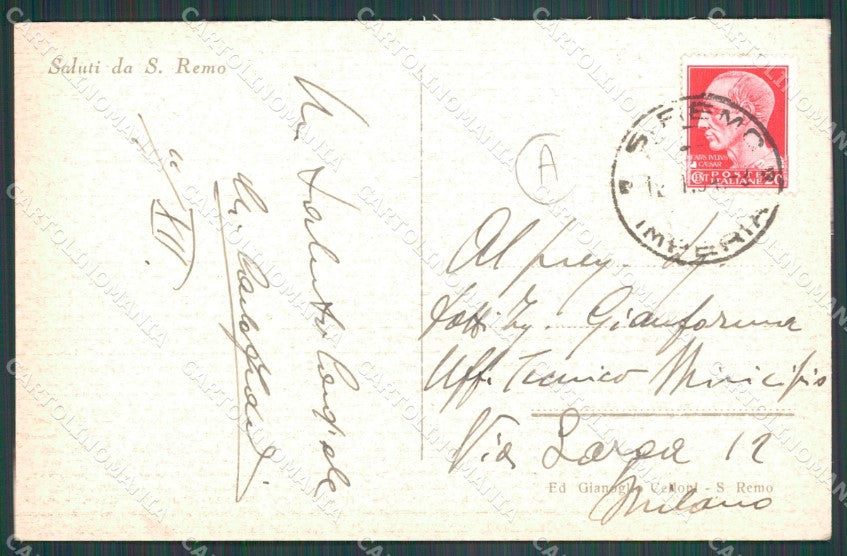 Saluti da S. Remo
Un saluto cordiale
XII
A
S. REMO
IMPERIA
CAESAR
CENT POSTE ITALIANE 20
Al preg.
Dott. Ing. Gianforma
Uff. Tecnico Municipio
Via Larga 12
Milano
Ed Gianoglio Celloni - S Remo
CARTOLINOMANIA